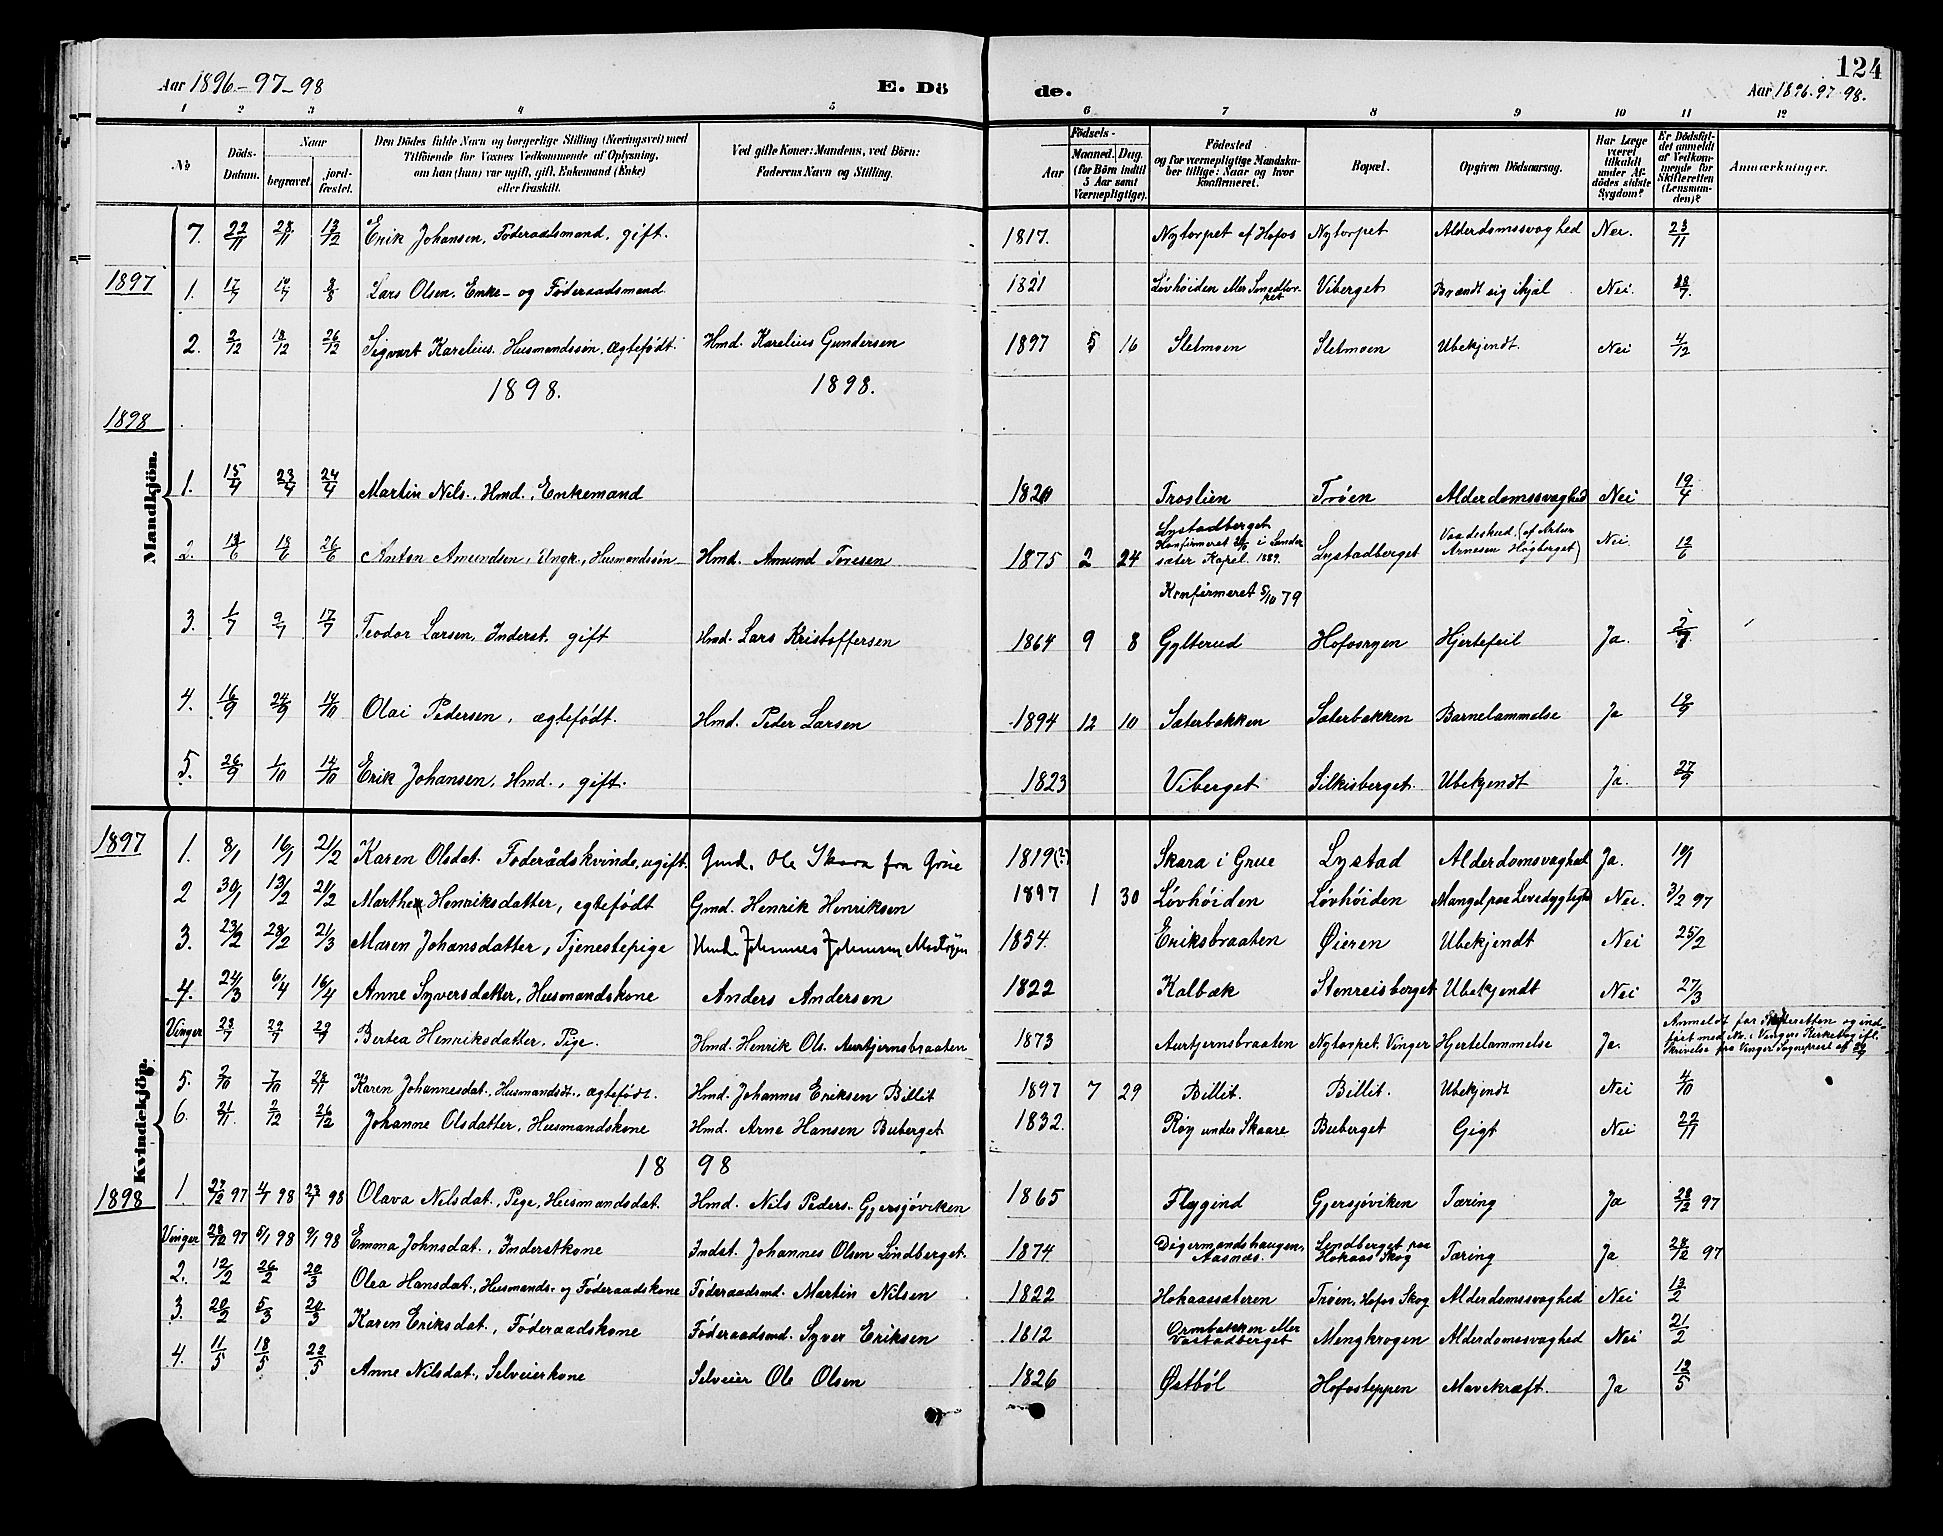 124
Aar 1896-97-98 E. Dö de. Aar 1896-97-98.
1 2 3 4 5 6 7 8 9 10 11 12
No Döds-Datum. Naar begravet. jordfæstet. Den Dödes fulde Navn og borgerlige Stilling (Næringsvei) med Tilföiende for Voxnes Vedkommende af Oplysning, om han (hun) var ugift, gift, Enkemand (Enke) eller fraskilt. Ved gifte Koner: Mandens, ved Börn: Faderens Navn og Stilling. Födsels- Aar Maaned. Dag. (for Börn indtil 5 Aar samt Værnepligtige). Födested og for værnepligtige Mandskaber tillige: Naar og hvor konfirmeret. Bopæl. Opgiven Dödsaarsag. Har Læge været tilkaldt under Afdödes sidste Sygdom? Er Dödsfaldet anmeldt af Vedkommende for Skifteretten (Lensmanden)? Anmærkninger.
Mandkjön.
7. 22/11 28/11 13/12 Erik Johansen, Føderaadsmand, gift. 1817. Nytorpet af Hofos Nytorpet Alderdomssvaghed Nei. 23/11
1897
1. 17/7 19/7 8/8 Lars Olsen. Enke- og Føderaadsmand 1821 Løvhøiden eller Smedtorpet Viberget Brændt sig ihjal Nei. 28/7.
2. 2/12 18/12 26/12 Sigvart Karelius. Husmandssøn, ægtefødt. Hmd. Karelius Gundersen 1897 5 16 Sletmoen Sletmoen Ubekjendt. Nei 4/12
1898. 1898.
1898
1. 15/4 23/4 24/4 Martin Nils., Hmd., Enkemand 1820 Troslien Trøen Alderdomssvaghed Nei 19/4
2. 18/6 26/6 Anton Amundsen, Ungk., Husmandssøn Hmd. Amund Toresen 1875 2 24 Lystadberget Konfirmeret i Sander sæter Kapel. 1889. Lystadberget Vaadeskud. (af Artur Arnesen Høgberget) Nei. 12/6
3. 1/7 9/7 17/7 Teodor Larsen, Inderst. gift Hmd. Lars Kristoffersen 1864 9 8 Konfirmeret 5/10 79 Gylterud Hofosryen Hjertefeil Ja. 2/7
4. 16/9 24/9 14/10 Olai Pedersen, ægtefødt. Hmd. Peder Larsen 1894 12 10 Sæterbakken Sæterbakken Barnelammelse Ja 19/9
5. 26/9 1/10 14/10 Erik Johansen, Hmd., gift. 1823 Viberget Silkisberget. Ubekjendt Ja. 27/9
Kvindekjön.
1897
1. 8/1 16/1 21/2 Karen Olsdat. Føderådskvinde, ugift. Gmd. Ole Skara fra Grue 1819(?) Skara i Grue Lystad Alderdomsvaghed Ja. 10/1
2 30/1 13/2 21/2 Marthe Henriksdatter, egtefødt Gmd. Henrik Henriksen 1897 1 30 Løvhøiden Løvhøiden Mangel paa Levedygtighed Nei. 3/2 97
3. 23/2 28/2 21/3 Maren Johansdatter, Tjenestepige Hmd. Johannes Johansen 1854. Eriksbraaten Øieren Ubekjendt Nei 25/2
4. 24/3 6/4 16/4 Anne Syversdatter, Husmandskone Anders Andersen 1822 Kalbæk Stenreisberget Ubekjendt Nei 27/3
Vinger 23/7 29/7 29/7 Bertea Henriksdatter, Pige. Hmd. Henrik Ols. Aurtjernsbraaten 1873 Aurtjernsbraaten Nytorpet. Vinger Hjertelammelse Ja. Anmeldt for Skifteretten og indført med No. i Vingers Kirkebog ifl. Skrivelse fra Vinger Sogneprest af
5. 2/10 7/10 28/11 Karen Johannesdat. Husmandsdt., ægtefødt. Hmd. Johannes Eriksen Billit 1897 7 29 Billit. Billit. Ubekjendt Nei 4/10
6. 21/11. 2/12 26/12 Johanne Olsdatter, Husmandskone Hmd. Arne Hansen Buberget 1832. Røy under Skaare Buberget Gigt Nei 22/11
18 98
1898
1. 27/12 97 4/1 98 23/1 98 Olava Nilsdat., Pige, Husmandsdat. Hmd. Nils Peders. Gjersjøviken 1865 Flygind Gjersjøviken Tæring Ja 28/12 97
Vinger 28/12 97 5/1 98 9/1 98 Emma Johnsdat., Inderstkone Indst. Johannes Olsen Lindberget. 1874 Digermandshaugen, Aasnæs. Lindberget paa Hokaas Skog Tæring Ja 28/12 97
2. 12/2 26/2 20/3 Olea Hansdat., Husmands- og Føderaadskone Føderaadsmd. Martin Nilsen 1822 Hokaassæteren Trøen, Hofos Skog Alderdomssvaghed Nei 13/2
3. 20/2 5/3 20/3 Karen Eriksdat., Føderaadskone Føderaadsmd. Syver Eriksen 1812 Ormbakken eller Vastadberget Mengkrogen Alderdomssvaghed Nei 21/2
4. 11/5 18/5 22/5 Anne Nilsdat., Selveierkone Selveier Ole Olsen 1826 Østbøl Hofosteppen Mavekræft. Ja 12/5